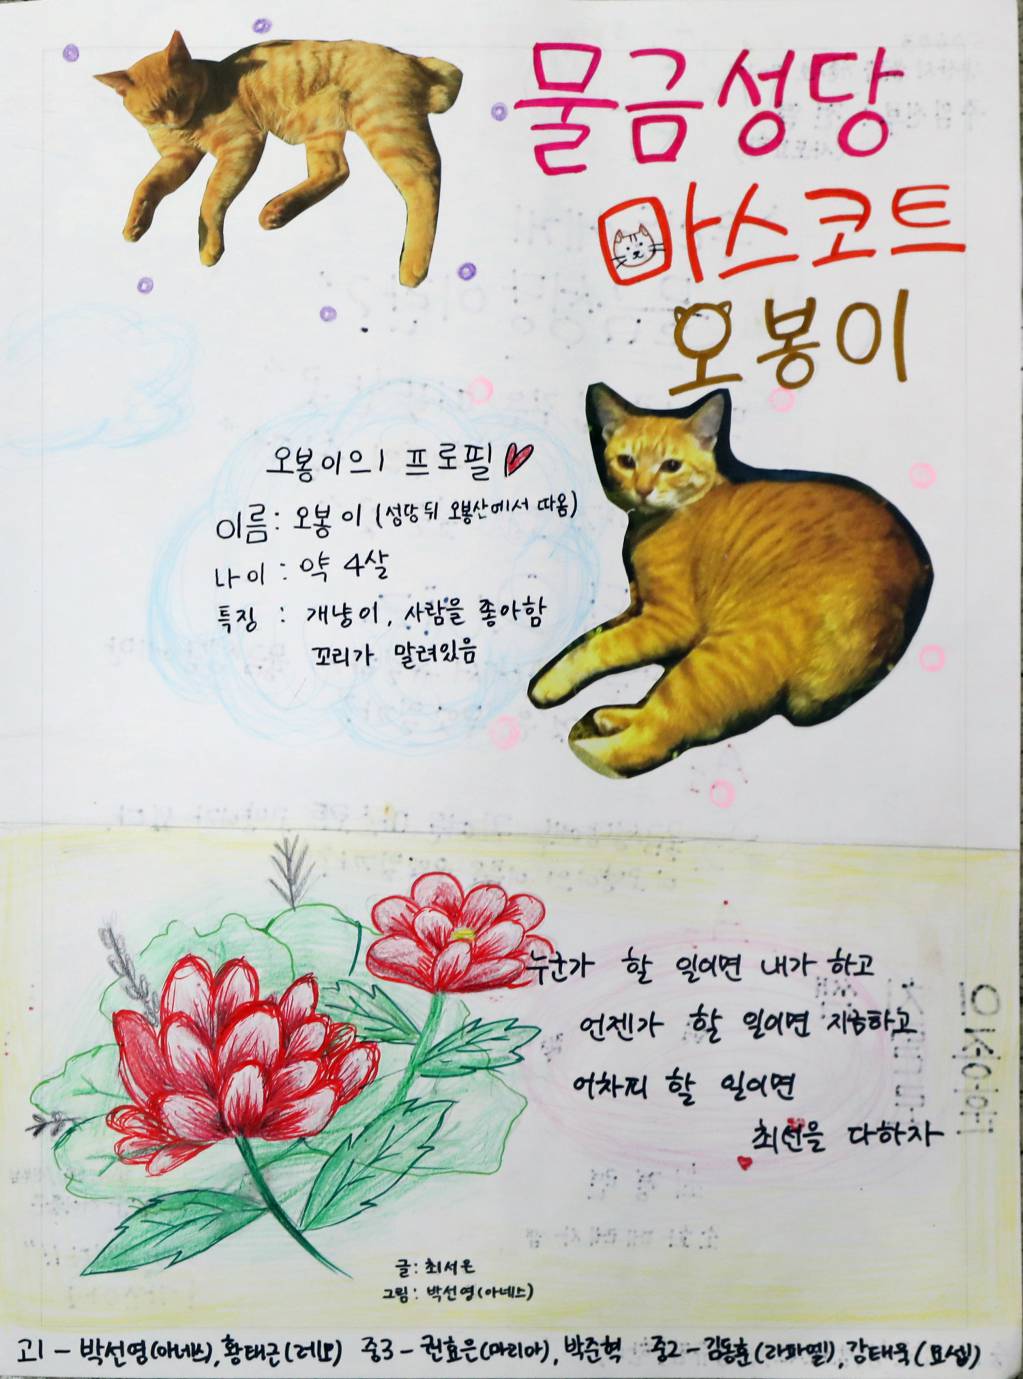 물금성당
마스코트
오봉이
오봉이의 프로필
이름: 오봉이 (성당 뒤 오봉산에서 따옴)
나이 : 약 4살
특징 : 개냥이, 사람을 좋아함
꼬리가 말려있음
누군가 할 일이면 내가 하고
언젠가 할 일이면 지금하고
어차피 할 일이면
최선을 다하자
글: 최서은
그림: 박선영(아녜스)
고1 - 박선영(아녜스), 황태근(레오) 중3 - 권효은(마리아), 박준혁 중2 - 김동훈(라파엘), 강태욱(요셉)